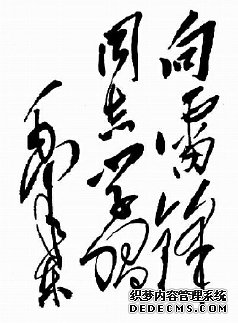 向雷锋
同志学习
毛泽东
织梦内容管理系统
DEDECMS.COM